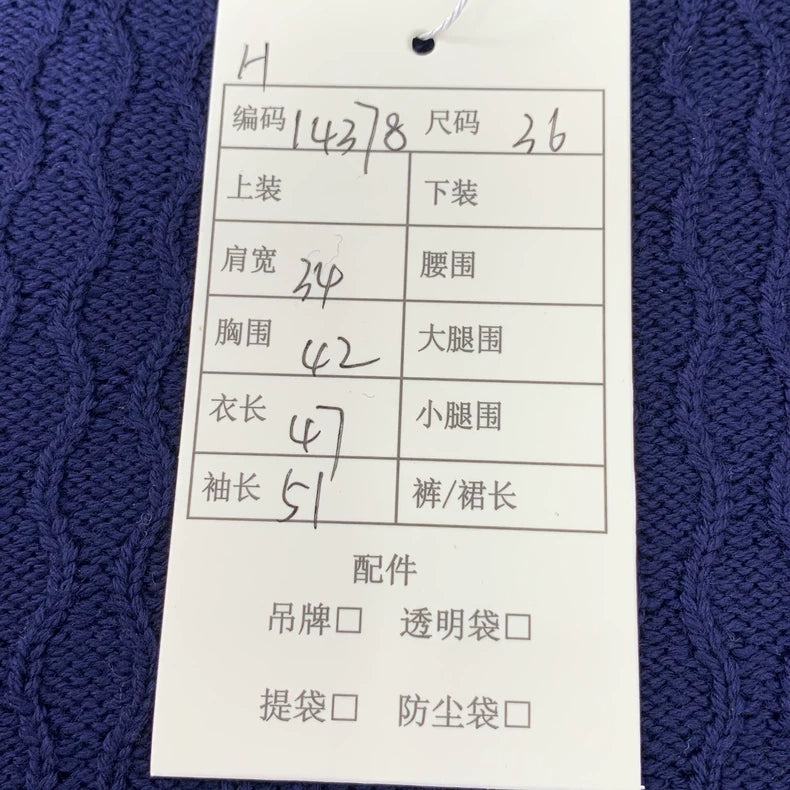 H
编码 14378 尺码 36
上装 下装
肩宽 34 腰围
胸围 42 大腿围
衣长 47 小腿围
袖长 51 裤/裙长
配件
吊牌□ 透明袋□
提袋□ 防尘袋□